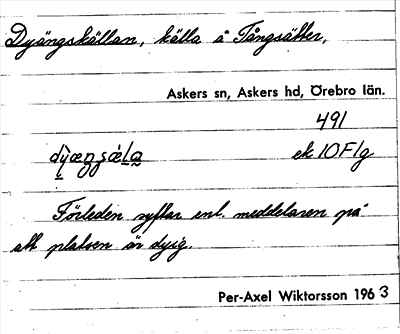 Dyängskällan, källa å Tångsätter,
Askers sn, Askers hd, Örebro län.
491
ek 10F1g
Förleden syftar enl. meddelaren på
att platsen är dyig.
Per-Axel Wiktorsson 1963